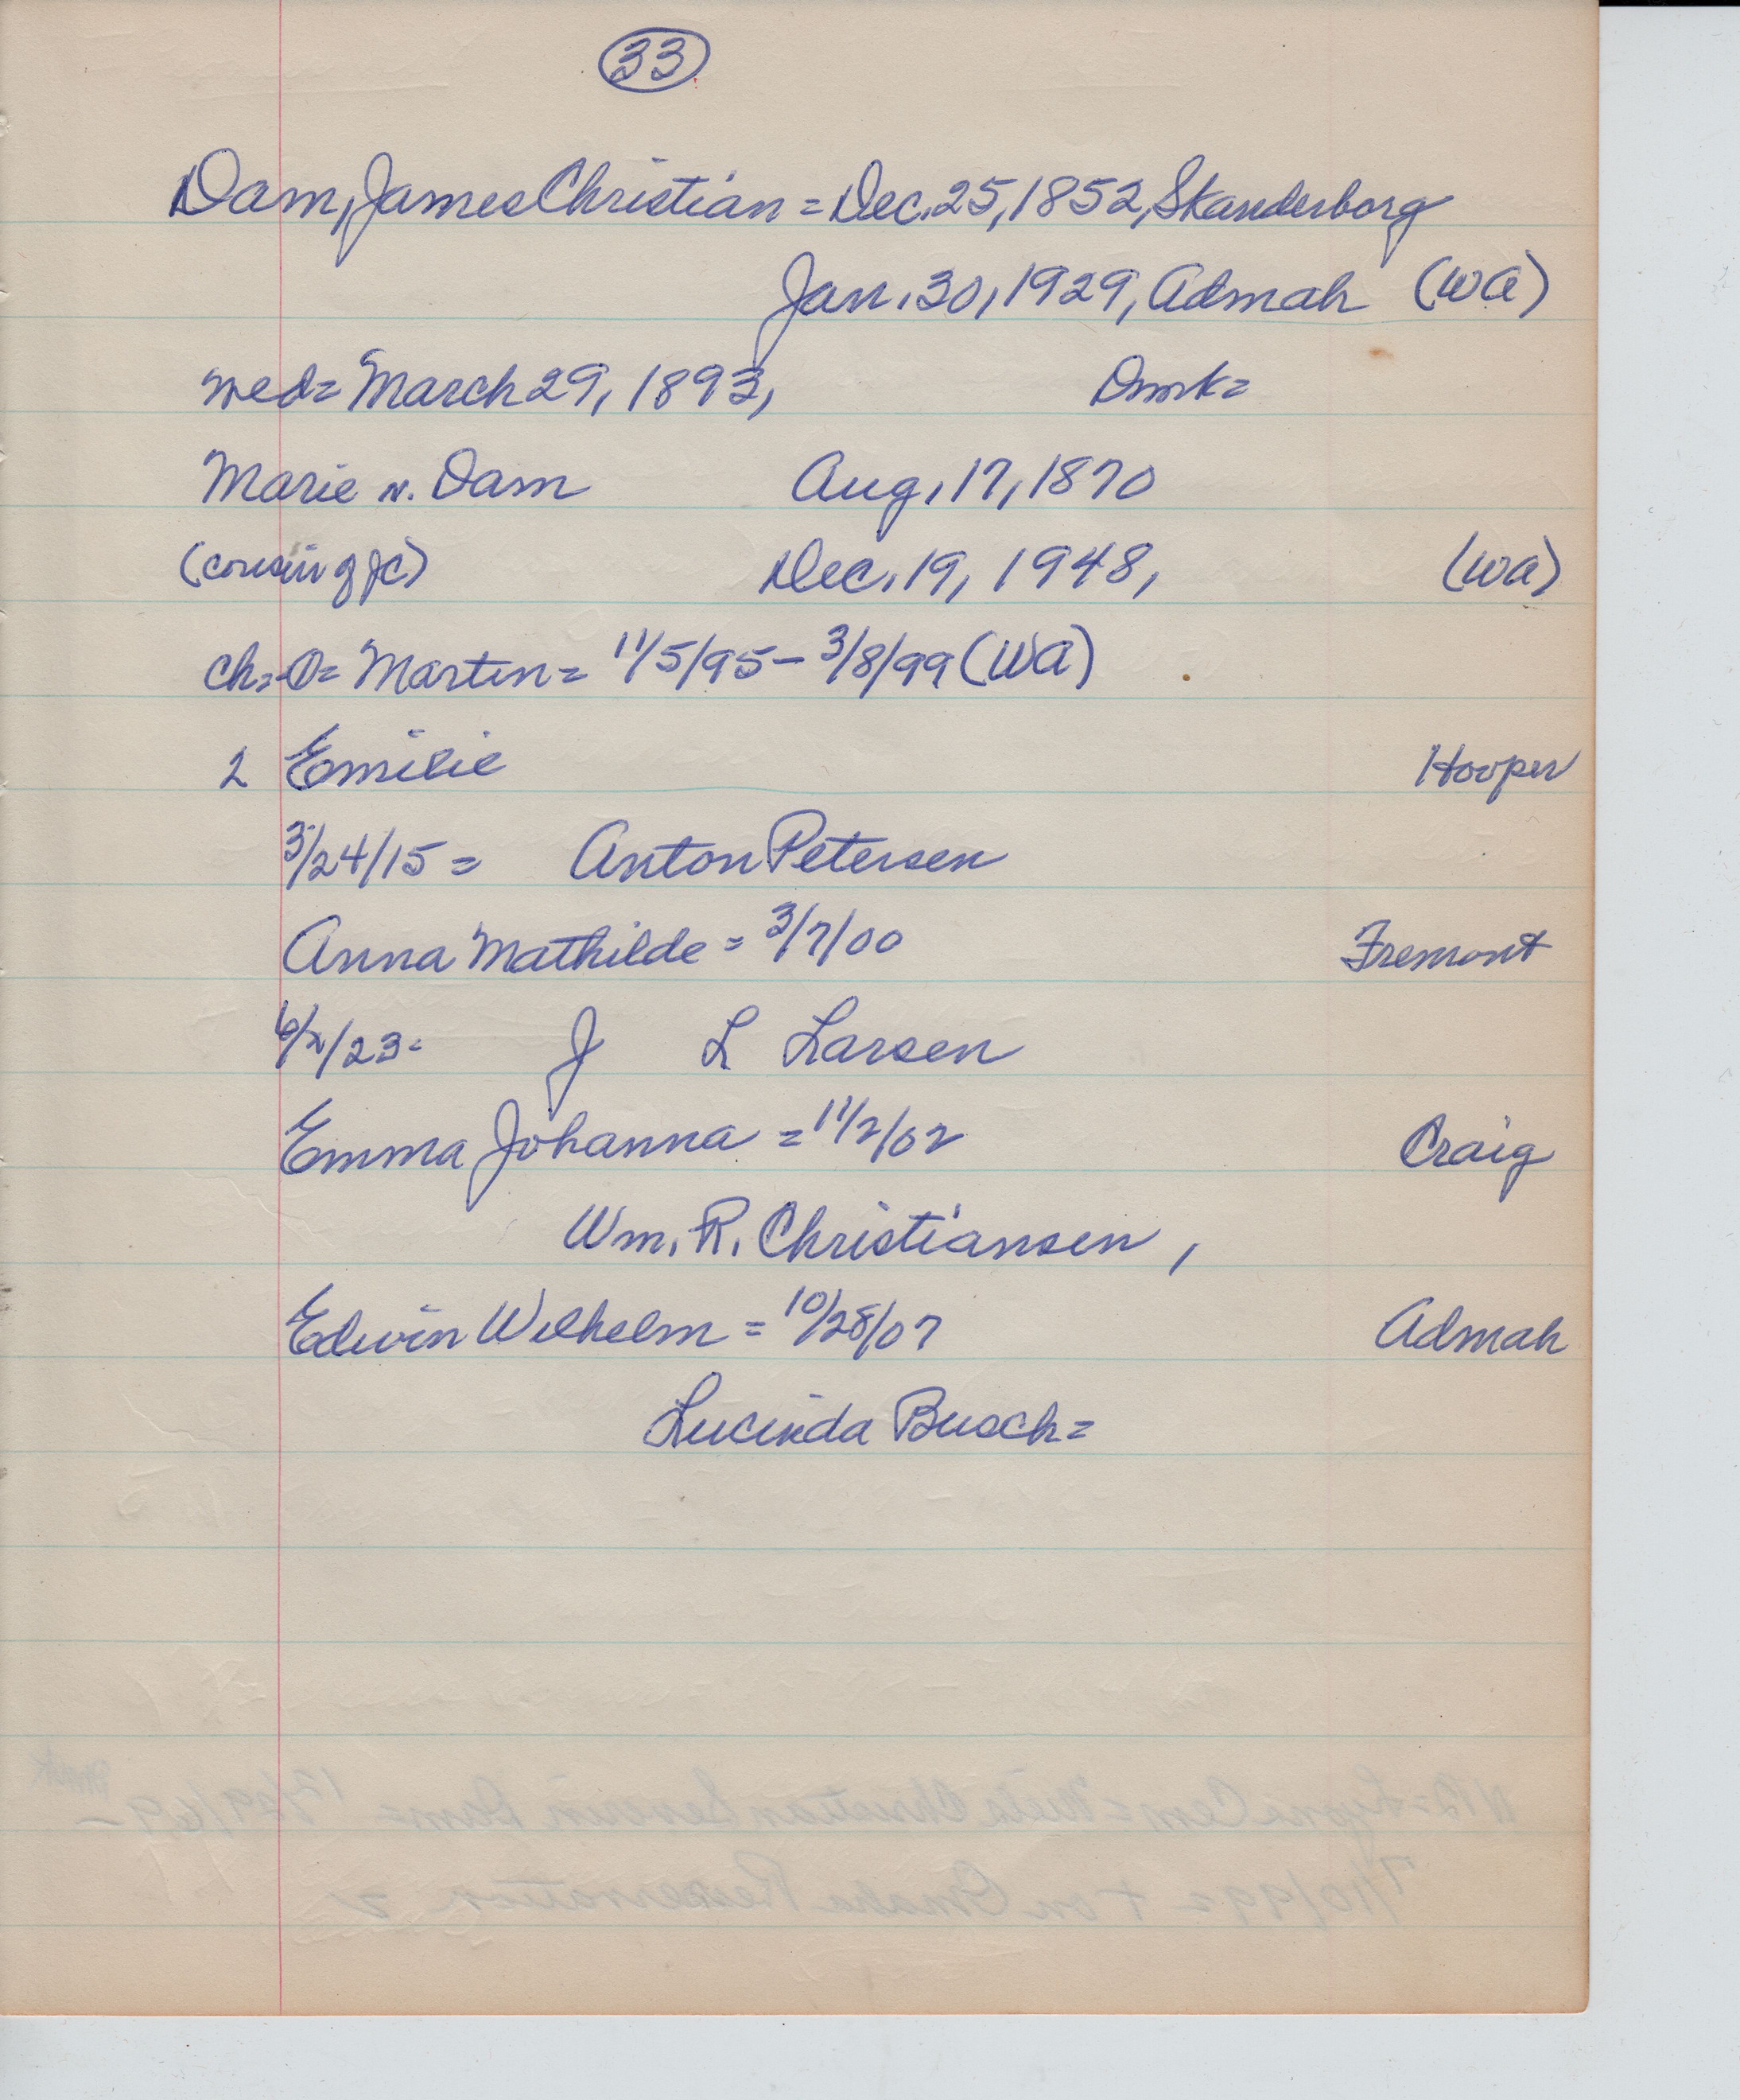 33
Dam, James Christian = Dec. 25, 1852, Skanderborg
Jan. 30, 1929, Admah (WA)
wed = March 29, 1893, Dmrk =
Marie N. Dam Aug. 17, 1870
(cousin of JC) Dec. 19, 1948, (WA)
ch = 0 = Marten = 11/5/95 - 3/8/99 (WA)
2 Emilie Hooper
3/24/15 = Anton Petersen
Anna Mathilde = 3/7/00 Fremont
/23 - J L Larsen
Emma Johanna = 11/2/02 Craig
Wm. R. Christiansen,
Edwin Wilhelm = 10/28/07 Admah
Lucinda Busch =